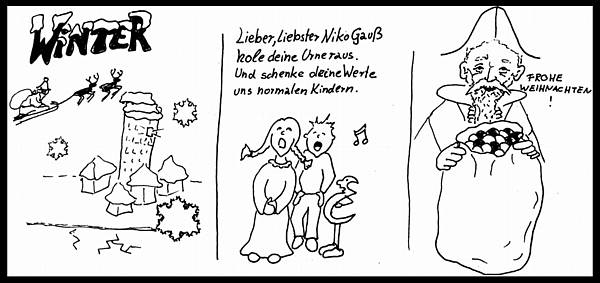 WiNTER
Lieber, Liebster Niko Gauß
hole deine Urne raus.
Und schenke deine Werte
uns normalen Kindern.
FROHE
WEIHNACHTEN
!